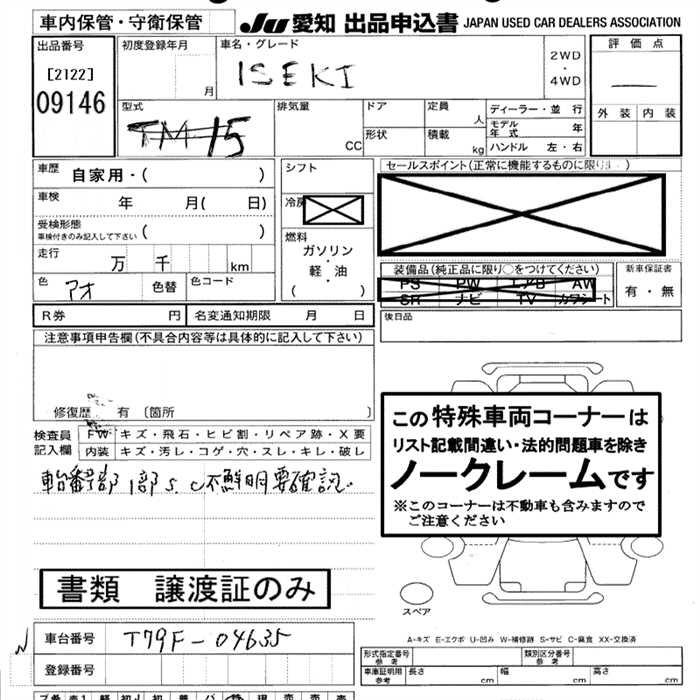 車内保管・守衛保管
JU 愛知 出品申込書 JAPAN USED CAR DEALERS ASSOCIATION
出品番号
[2122]
09146
初度登録年月
月
車名・グレード
ISEKI
2WD
・
4WD
評価点
外装 内装
型式
TM-15
排気量
CC
ドア
形状
定員
人
積載
kg
ディーラー・並 行
モデル年式 年
ハンドル 左・右
車歴 自家用・( )
車検 年 月( 日)
受検形態
車検付きのみ記入して下さい ( )
走行 万 千 km
色 アオ 色替 色コード
シフト
冷房
燃料
ガソリン
・
軽・油
( )
セールスポイント(正常に機能するものに限ります)
装備品(純正品に限り○をつけてください)
PS PW エアB AW
SR ナビ TV カワシート
新車保証書
有・無
R券 円 名変通知期限 月 日
後日品
注意事項申告欄(不具合内容等は具体的に記入して下さい)
修復歴 有 〔箇所 〕
検査員記入欄
FW キズ・飛石・ヒビ割・リペア跡・X要
内装 キズ・汚レ・コゲ・穴・スレ・キレ・破レ
車台番号部 1部 S.C 不鮮明要確認.
この特殊車両コーナーは
リスト記載間違い・法的問題車を除き
ノークレームです
※このコーナーは不動車も含みますので
ご注意ください
書類 譲渡証のみ
スペア
A-キズ E-エクボ U-凹み W-補修跡 S-サビ C-腐食 XX-交換済
車台番号 T79F-04635
登録番号
型式指定番号
参考
類別区分番号
参考
車庫証明用
参考
長さ cm 幅 cm 高さ cm